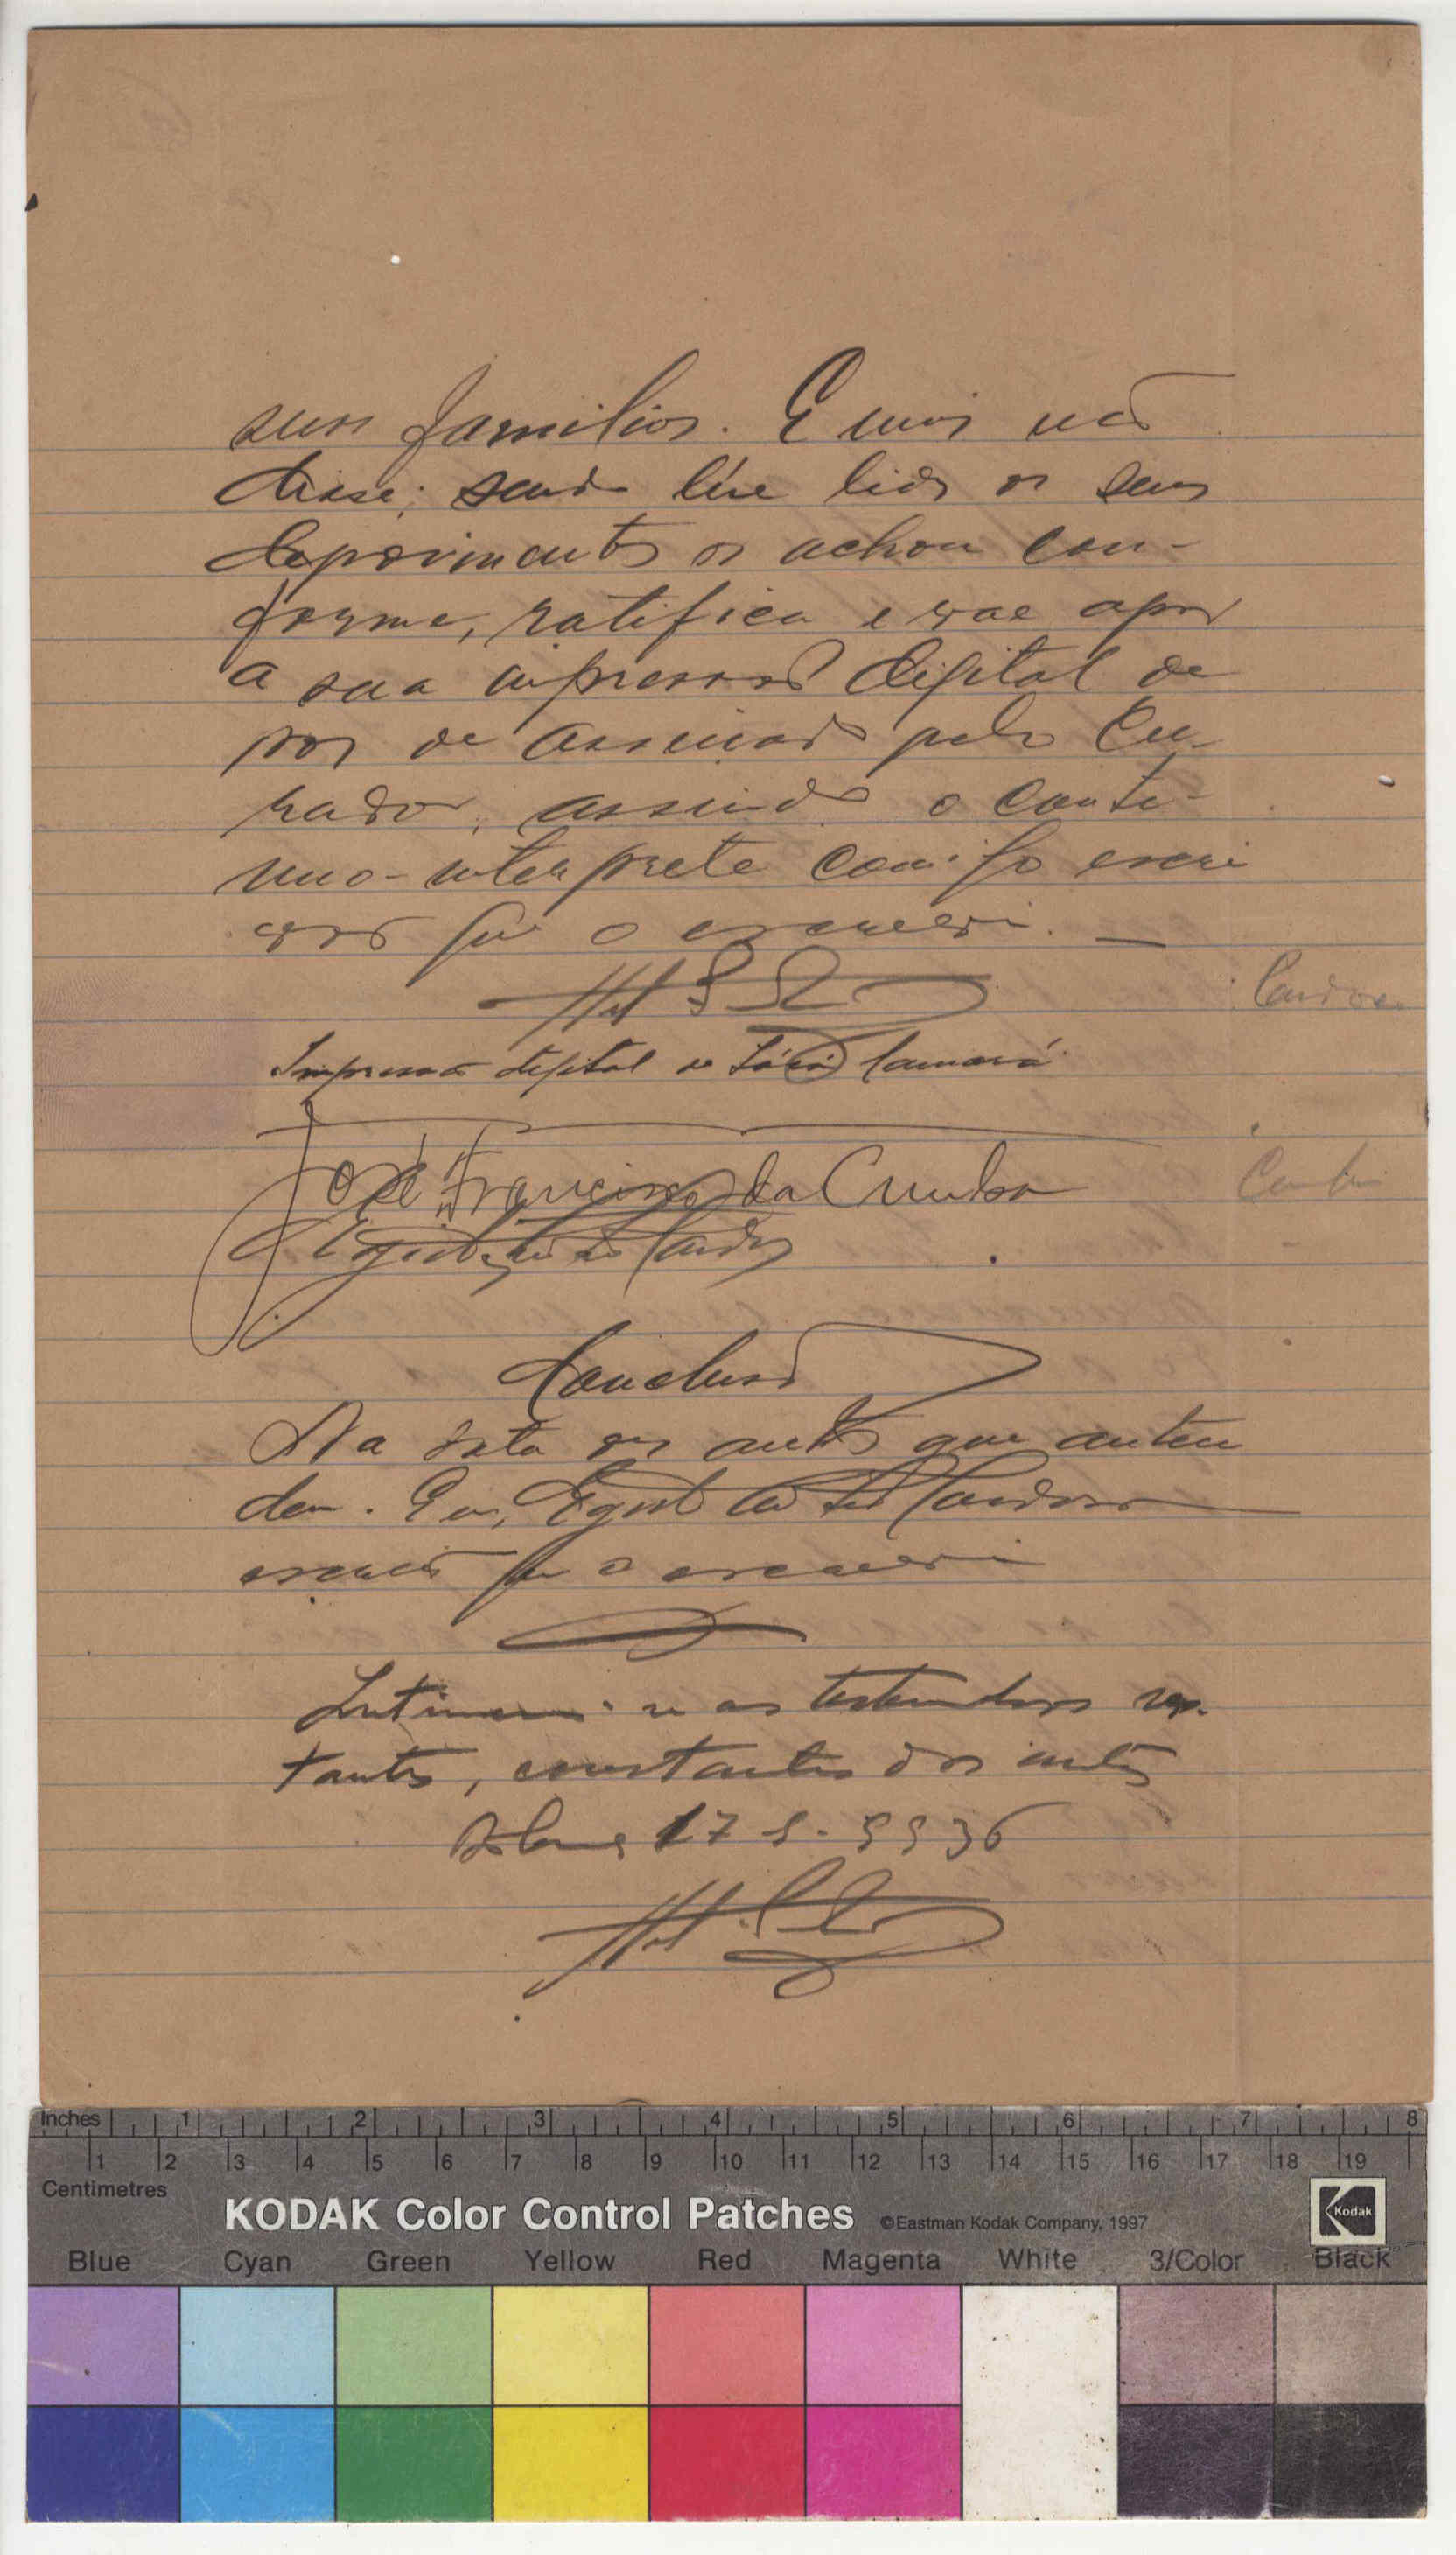 suas familias. E mais não
disse; sendo lhe lidos os seus
depoimentos os achou con-
forme, ratifica e vae apor
a sua impressão digital de
pois de assinado pelo Cu-
rador, assinando o conti-
nuo-interprete comigo escri
vão que o escrevi. —
Impressão digital de Camará
José Francisco da Cunha
Conclusão
Na data os autos que antece
dem. Eu, Cardoso
escrivão que o escrevi
Intimem-se as testemunhas res-
tantes, constantes dos autos
17
Inches 1 2 3 4 5 6 7 8
1 2 3 4 5 6 7 8 9 10 11 12 13 14 15 16 17 18 19
Centimetres
KODAK Color Control Patches ©Eastman Kodak Company, 1997 Kodak
Blue Cyan Green Yellow Red Magenta White 3/Color Black